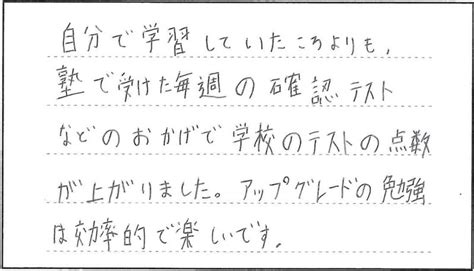 自分で学習していたころよりも,
塾で受けた毎週の確認テスト
などのおかげで学校のテストの点数
が上がりました。アップグレードの勉強
は効率的で楽しいです.